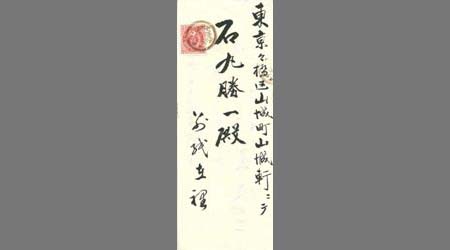 東京々橋区山城町山城軒ニテ
石丸勝一殿
在裡